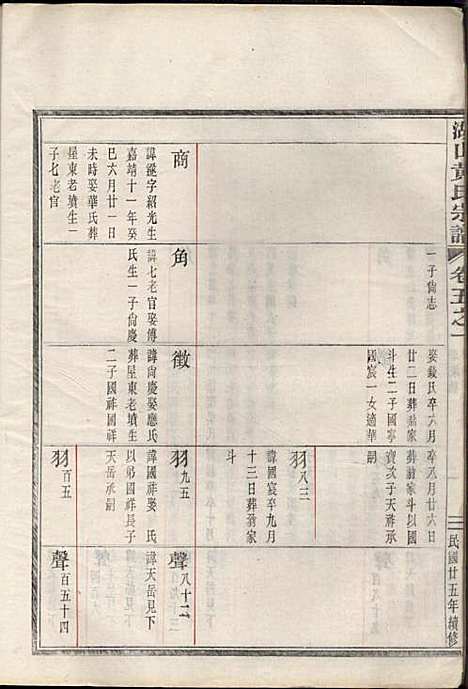 湖山黃氏宗譜
卷五之一
民國廿五年續修
一子尙志
娶敘氏卒六月
廿二日葬翁家
斗生二子國寧
國宸一女適華
卒八月廿六日
葬翁家斗以國
寶次子天祥承
嗣
羽八三
諱國宸卒九月
十三日葬翁家
斗
商
諱遜字紹光生
嘉靖十一年癸
巳六月廿一日
未時娶華氏葬
屋東老墳生一
子七老官
角
諱七老官娶傅
氏生一子尙慶
徵
諱尙慶娶應氏
葬屋東老墳生
二子國祥國祥
羽九五
諱國祥娶 氏
以弟國祥長子
天岳承嗣
羽百五
聲八十二
諱天岳見下
聲百五十四
見下